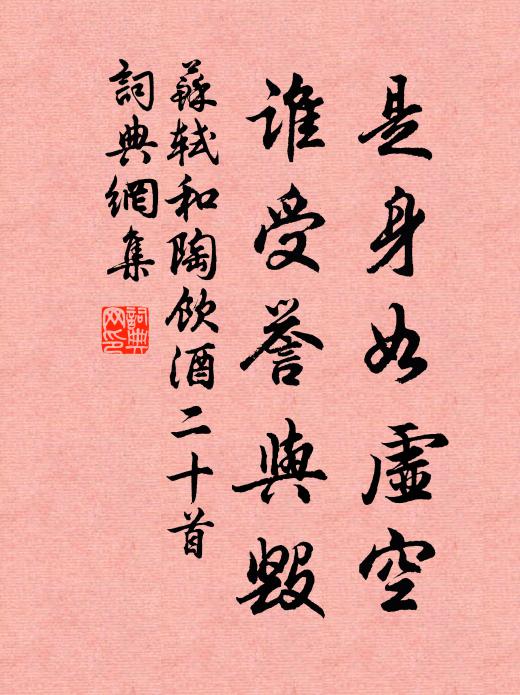 是身如虛空
誰受譽與毀
蘇軾和陶飲酒二十首
詞典網集
詞典网印